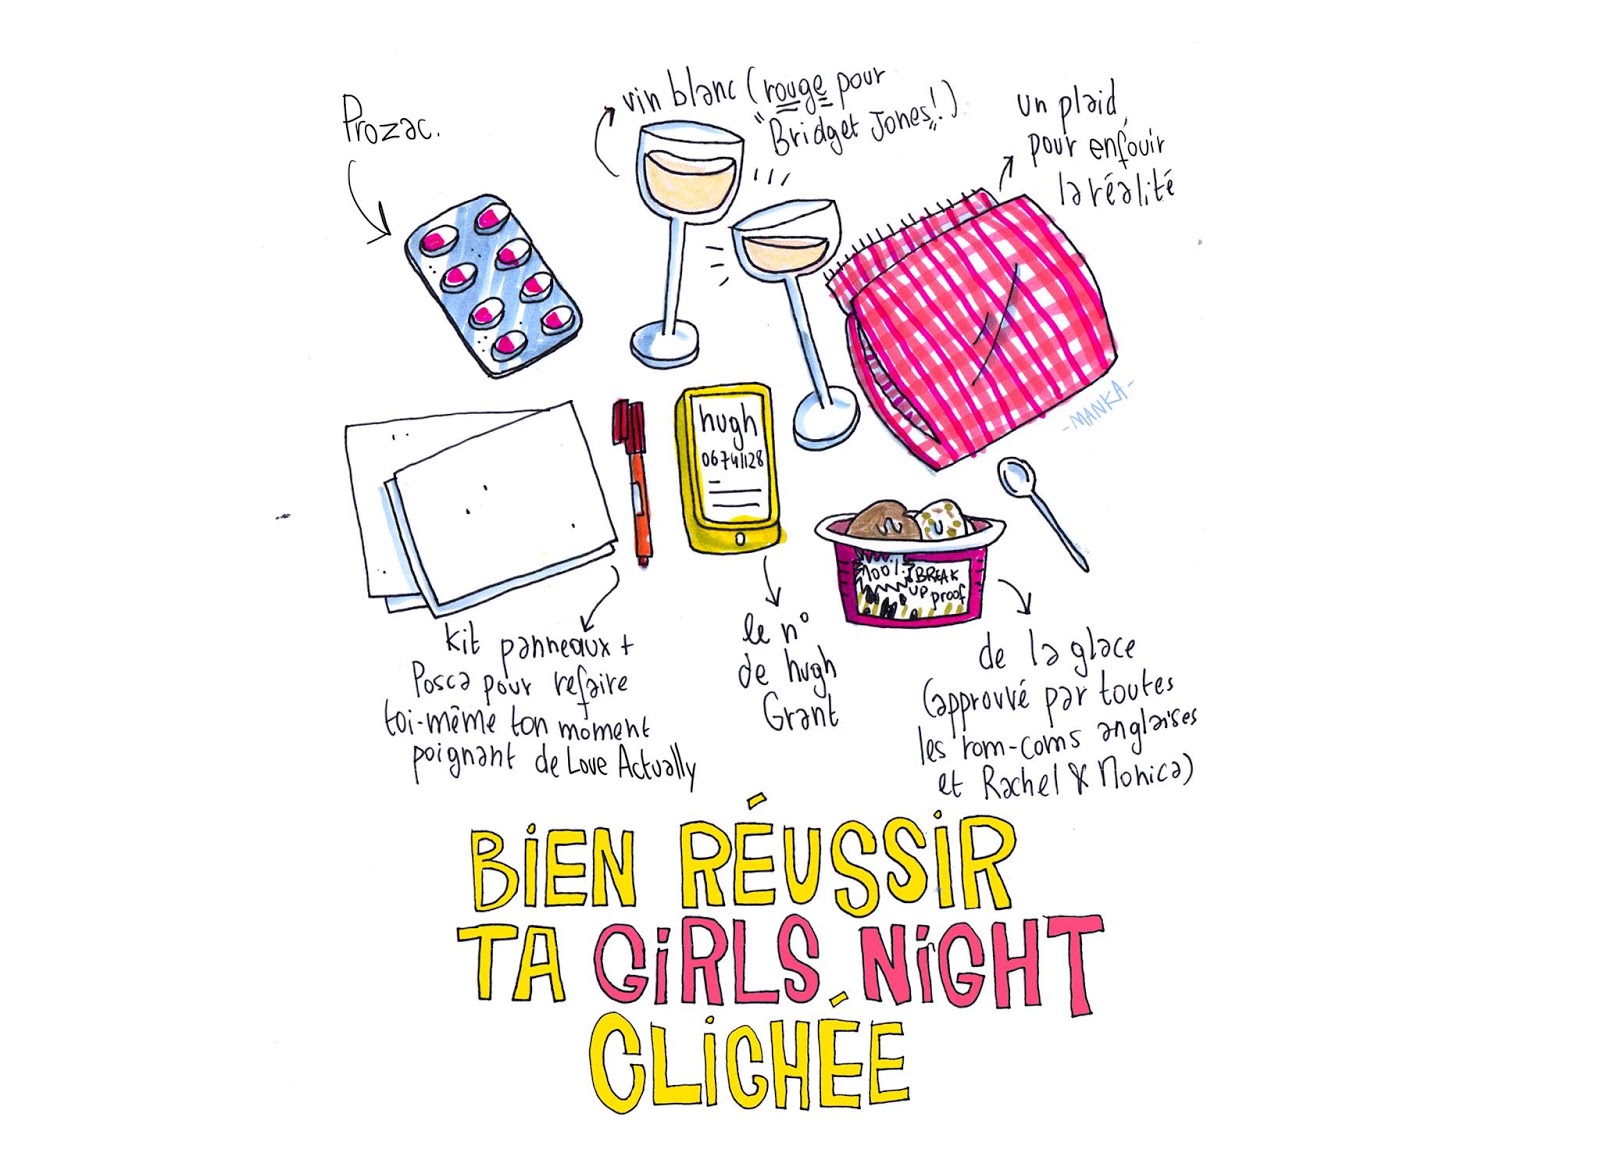 Prozac.
vin blanc (rouge pour
"Bridget Jones"!)
un plaid,
pour enfouir
la réalité
-MANKA-
hugh
06741128
100%
BREAK
UP proof
kit panneaux +
Posca pour refaire
toi-même ton moment
poignant de Love Actually
le n°
de hugh
Grant
de la glace
(approuvé par toutes
les rom-coms anglaises
et Rachel & Monica)
BiEN RÉUSSiR
TA GiRLS NiGHT
CLiCHÉE